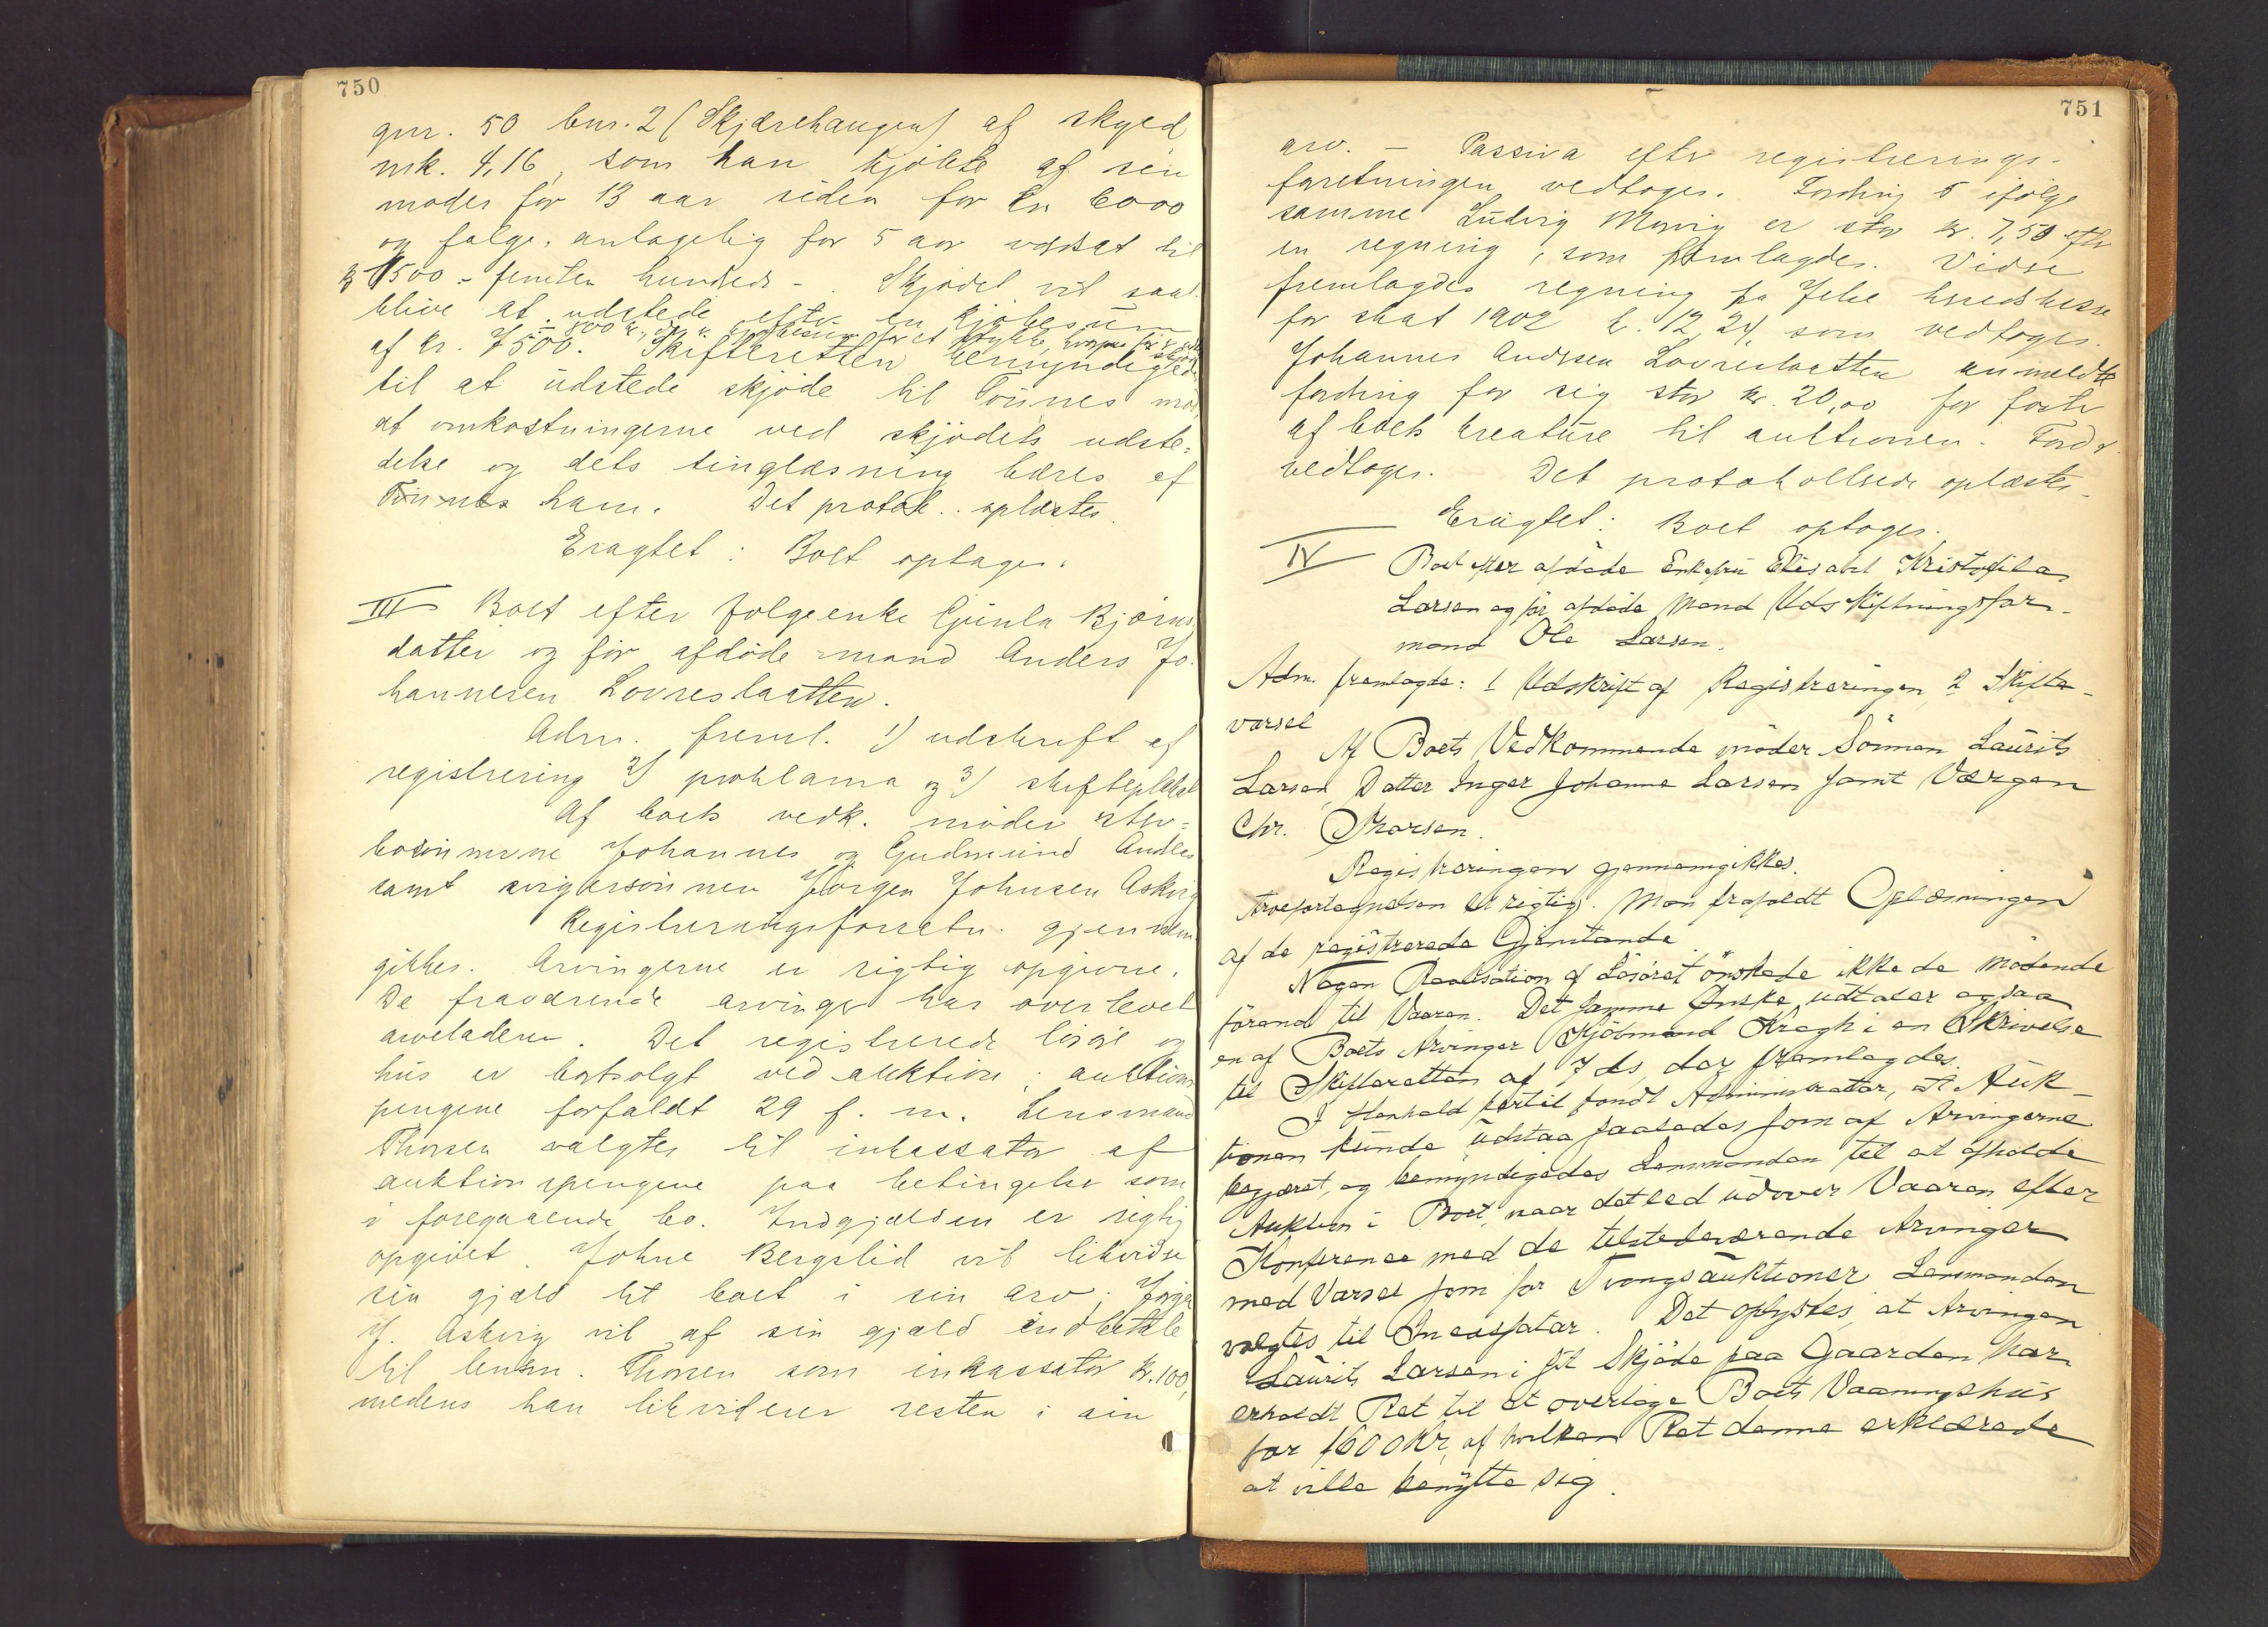 750
gnr. 50 bnr. 2 (Skjærehaugen) af skyld
mk. 4,16, som han kjøbte af sin
moder for 13 aar siden for kr 6000
og følge, antagelig for 5 aar værdsat til
kr 1500 - femten hundrede - . Skjødet vil saal.
blive at udstede efter en kjøbesum
af kr. 7500. Skifteretten bemyndiges
til at udstede skjøde til Tönnes mod
at omkostningerne ved skjødets udste-
delse og dets tinglæsning bæres af
Tönnes ham. Det protok. oplæstes.
Eragtet: Boet optages.
III Boet efter følgeenke Gunla Bjørns-
datter og før afdøde mand Anders Jo-
hannesen Lovreslaatten.
Adm. freml. 1) udskrift af
registrering 2) proklama og 3) skifteplakat
Af boets vedk. møder ster-
bosønnerne Johannes og Gudmund Anders
samt svigersønnen Jörgen Johnsen Askvig
Registreringsforretn. gjennem-
gikkes. Arvingerne er rigtig opgivne.
De fraværende arvinger har overlevet
arveladeren. Det registrerede løsøre og
hus er bortsolgt ved auktion; auktions
pengene forfaldt 29 f. m. Lensmand
Thorsen valgtes til inkassator af
auktionspengene paa betingelser som
i foregaaende bo. Indgjælden er rigtig
opgivet. Johne Bergslid vil likvidere
sin gjæld til boet i sin arv. Jörgen
J. Askvig vil af sin gjæld indbetale
til lensm. Thorsen som inkassator kr. 100,
medens han likviderer resten i sin
751
arv. - Passiva efter registrerings-
forretningen vedtoges. Fordring 5 ifølge
samme Ludvig Morvig er stor kr. 7,50 efter
en regning, som fremlagdes. Videre
fremlagdes regning fra Jelse herredskasse
for skat 1902 kr. 12,24, som vedtoges.
Johannes Andersen Lovreslaatten anmeldte
fordring for sig stor kr. 20,00 for foster
af boets kreature til auktionen. Fordr.
vedtoges. Det protokollerede oplæstes.
Eragtet: Boet optoges.
IV Boet efter afdøde Enkefru Elisabet Kristofila
Larsen og før afdøde Mand Udskiftningsfor-
mand Ole Larsen.
Adm. fremlagde: 1 Udskrift af Registreringen, 2 Skifte-
varsel
Af Boets Vedkommende møder Sönnen Laurits
Larsen, Datter Inger Johanne Larsen samt Værgen
Chr. Thorsen.
Registreringen gjennemgikkes.
Arvefortegnelsen er rigtig. Man frafaldt Oplæsningen
af de registrerede Gjenstande.
Nogen Realisation af Løsøret ønskede ikke de mødende
förend til Vaaren. Det samme Ønske udtaler ogsaa
en af Boets Arvinger Kjöbmand Kragh i en Skrivelse
til Skifteretten af 7 ds, der fremlagdes.
I Henhold hertil fandt Administrator, at Auk-
tionen kunde udstaa saaledes som af Arvingerne
begjæret, og bemyndigedes Lensmanden til at afholde
Auktion i Boet, naar det led udover Vaaren efter
Konference med de tilstedeværende Arvinger
med Varsel som for Tvangsauktioner. Lensmanden
valgtes til Incassator. Det oplystes, at Arvingen
Laurits Larsen i sit Skjøde paa Gaarden har
erholdt Ret til at overtage Boets Vaaningshus
for 1600 Kr, af hvilken Ret denne erklærede
at ville benytte sig.